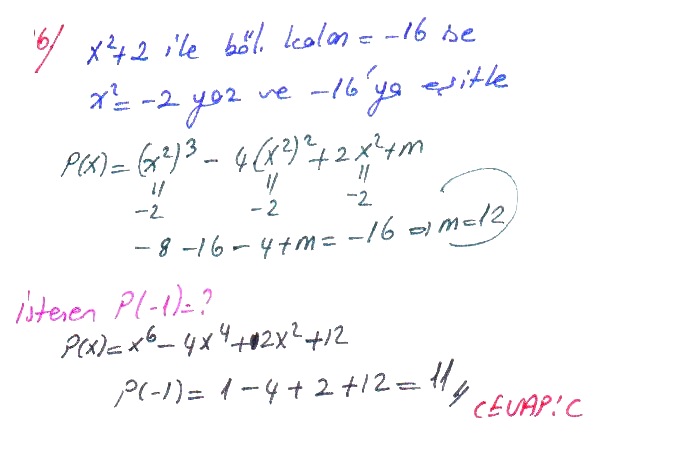 6/ x²+2 ile böl. kalan = -16 ise
x² = -2 yaz ve -16'ya eşitle
P(x) = (x²)³ - 4(x²)² + 2x² + m
= = =
-2 -2 -2
-8 -16 -4 + m = -16 ⇒ m = 12
istenen P(-1) = ?
P(x) = x⁶ - 4x⁴ + 2x² + 12
P(-1) = 1 - 4 + 2 + 12 = 11,
CEVAP: C